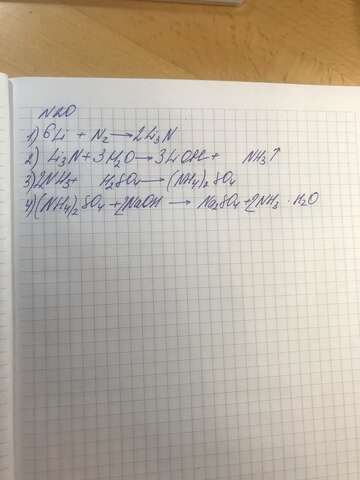 N20
1) 6Li + N₂ → 2Li₃N
2) Li₃N + 3H₂O → 3LiOH + NH₃↑
3) 2NH₃ + H₂SO₄ → (NH₄)₂SO₄
4) (NH₄)₂SO₄ + 2NaOH → Na₂SO₄ + 2NH₃ · H₂O